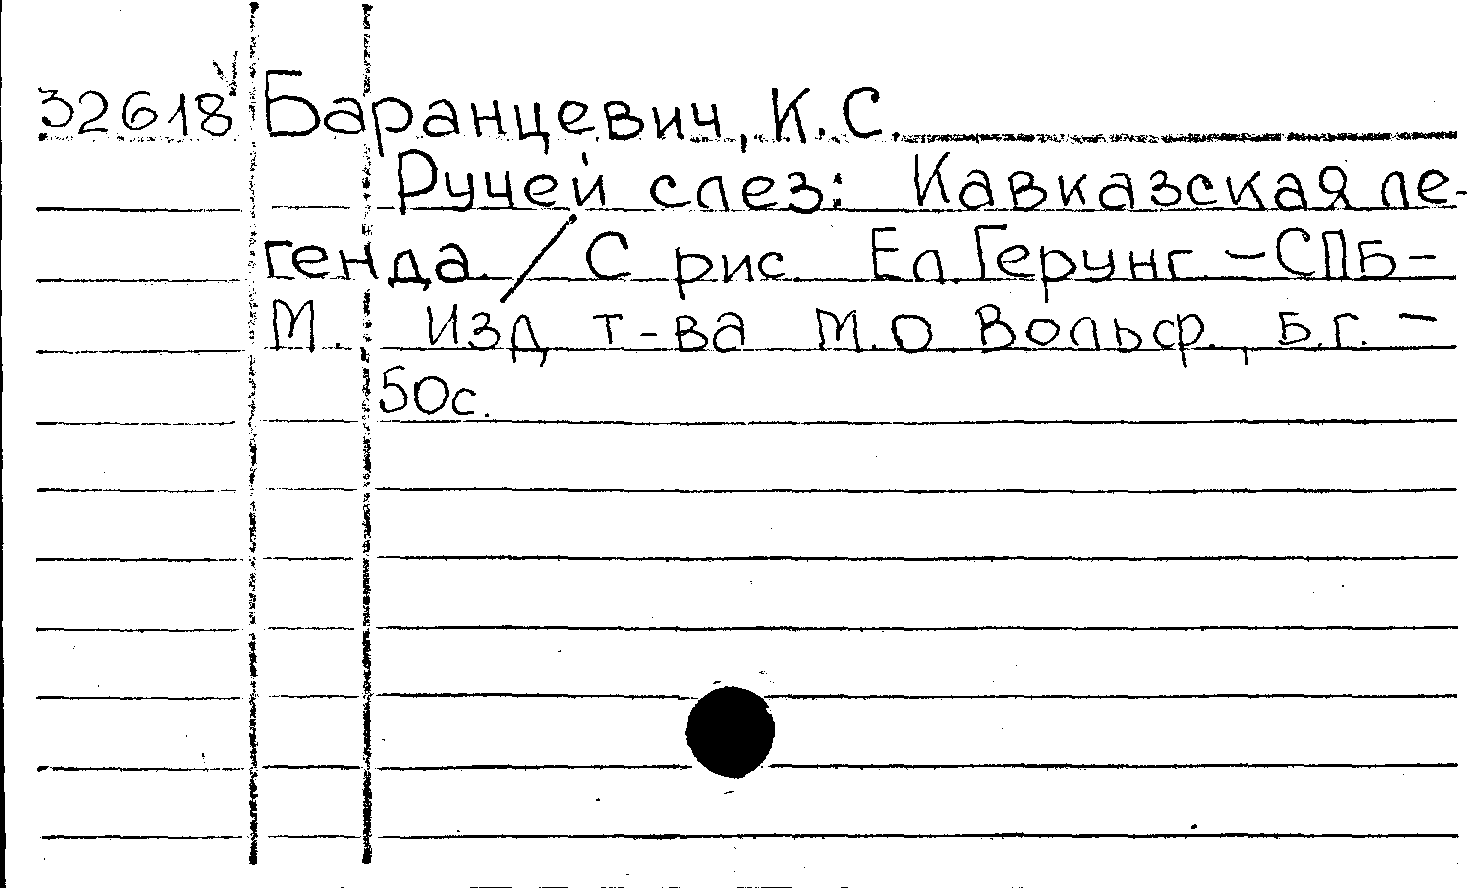 32618 Баранцевич, К. С.
Ручей слез: Кавказская ле-
генда. / С рис. Ел. Герунг. – СПБ –
М. Изд. т-ва М.О. Вольф., б.г. –
50с.